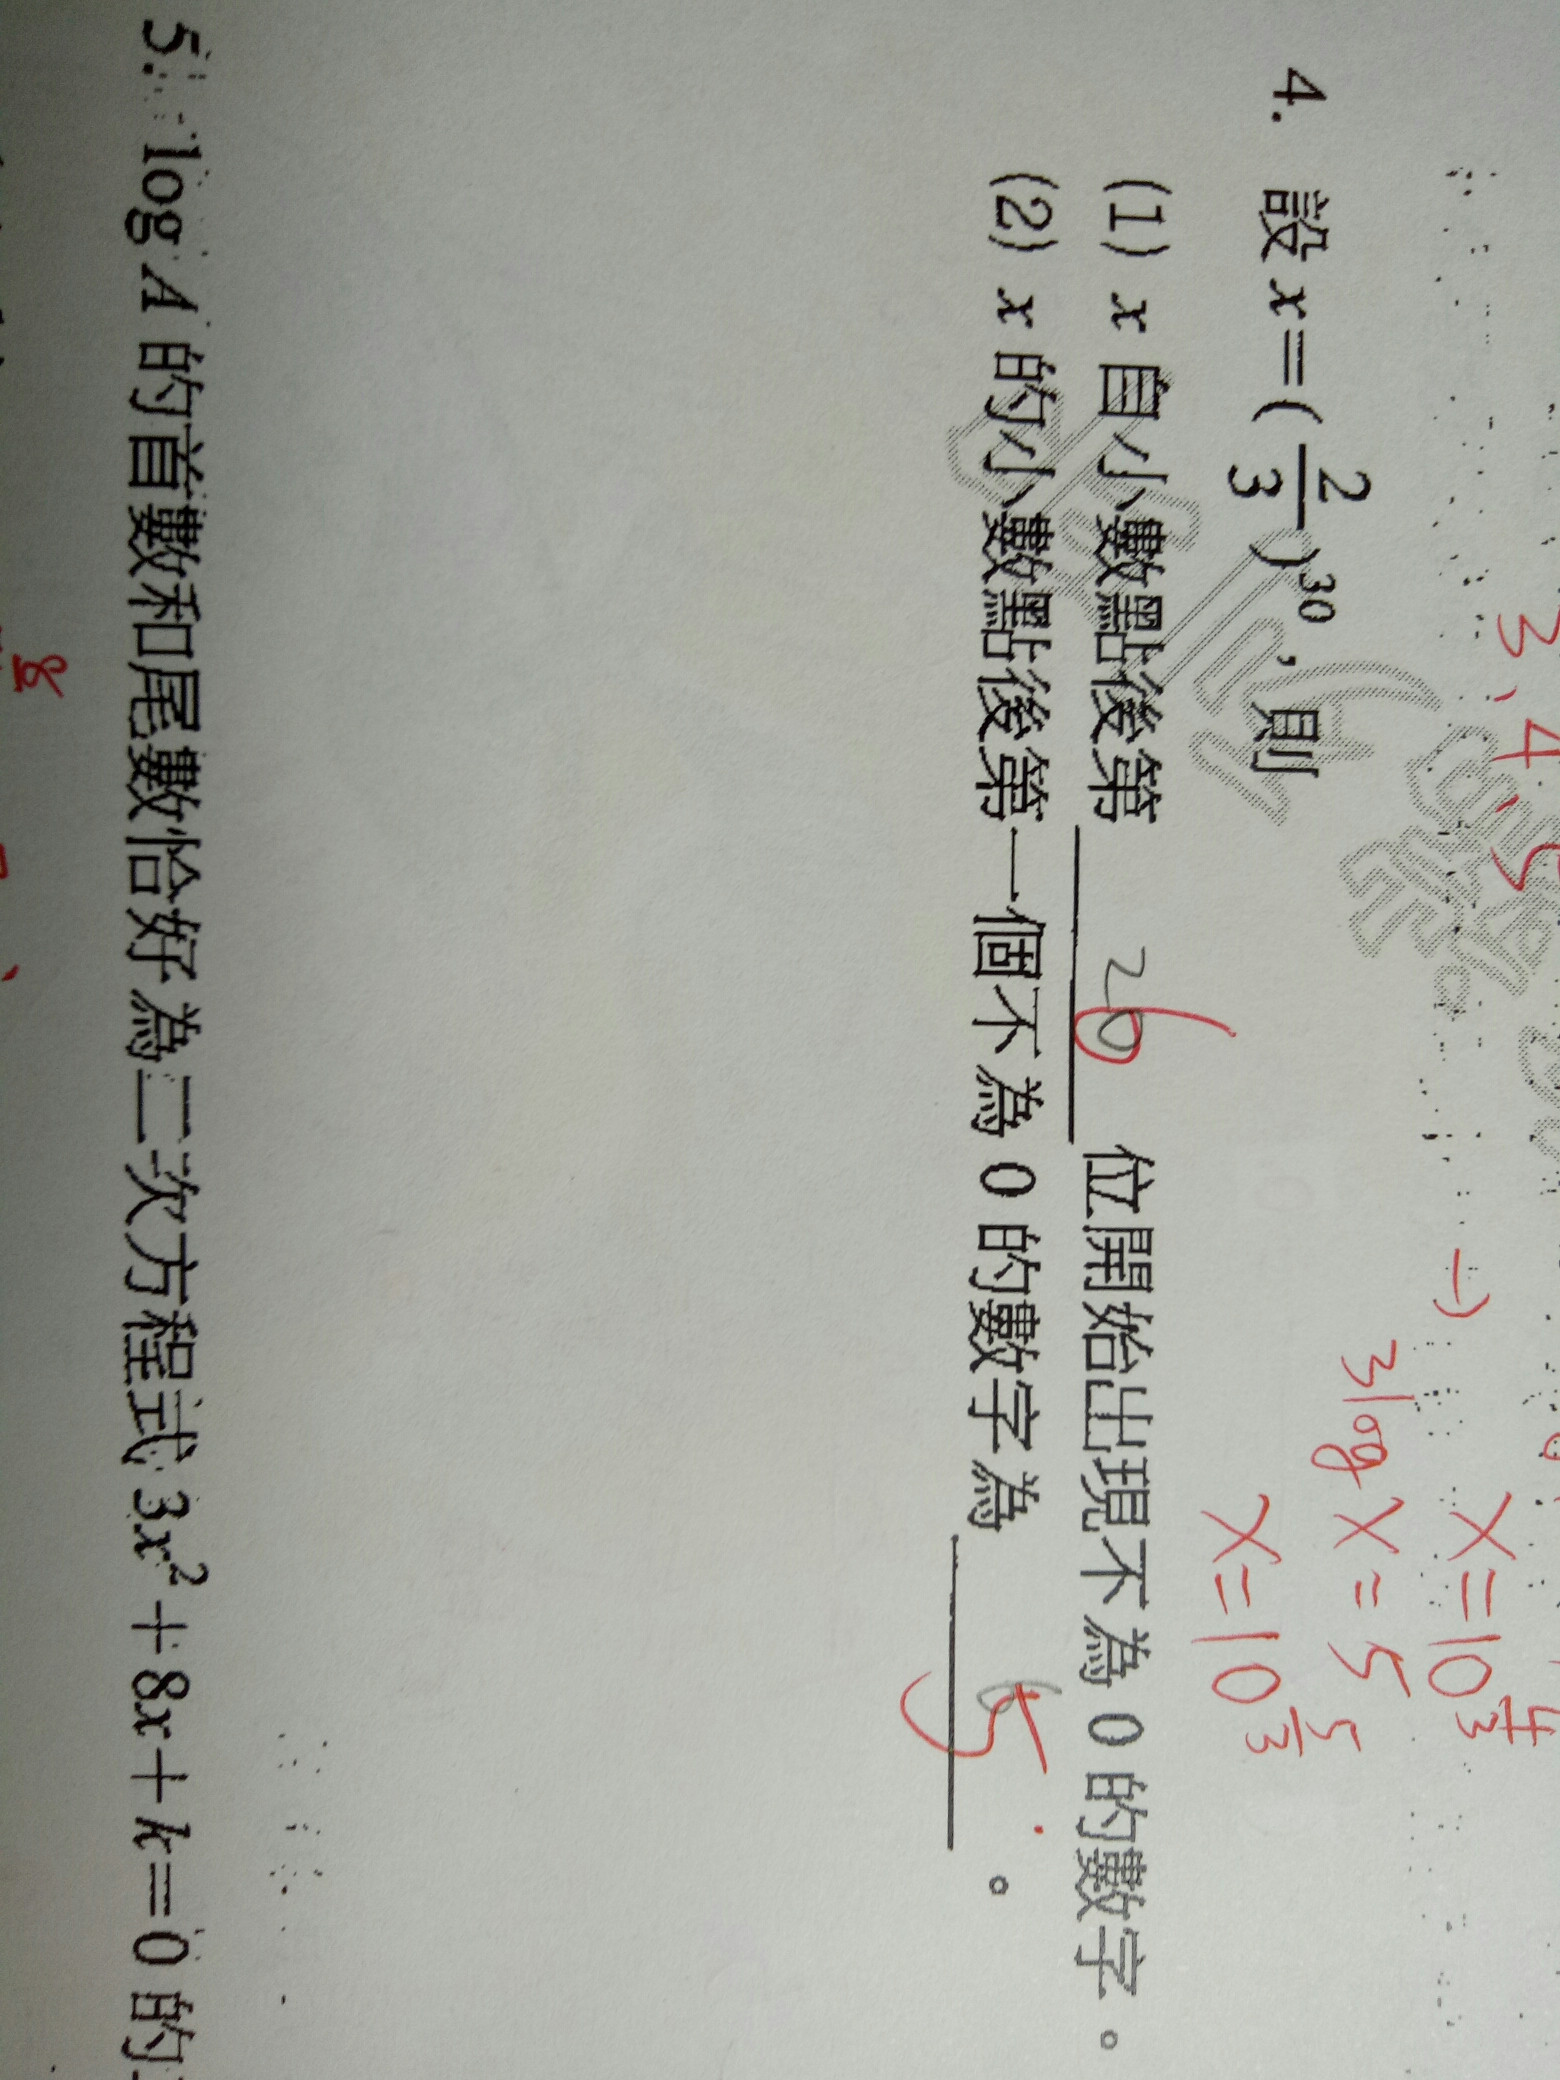 3、4、5
→ x=10^{4/3}
3log x=5
x=10^{5/3}
4. 設 x=(\frac{2}{3})^{30},則
(1) x 自小數點後第 26 位開始出現不為 0 的數字。
(2) x 的小數點後第一個不為 0 的數字為 5 。
5. log A 的首數和尾數恰好為二次方程式 3x²+8x+k=0 的